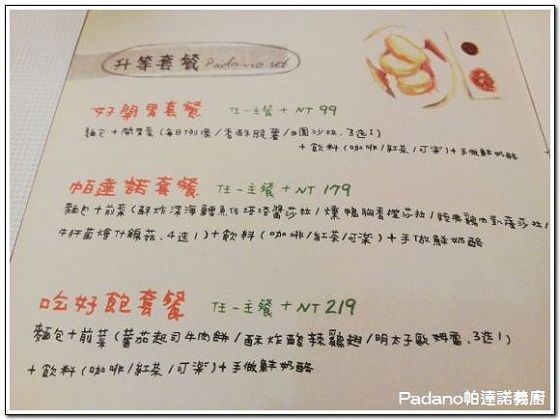 升等套餐 Padano set
好開胃套餐 任一主餐 + NT 99
麵包+開胃菜(每日例湯/香酥脆薯/田園沙拉,3選1)
+飲料(咖啡/紅茶/可樂)+手做鮮奶酪
帕達諾套餐 任一主餐 + NT 179
麵包+前菜(酥炸深海鱈魚佐塔塔醬莎拉/燻鴨胸香橙莎拉/經典雞肉凱薩莎拉/
牛肝菌燴什錦菇,4選1)+飲料(咖啡/紅茶/可樂)+手做鮮奶酪
吃好飽套餐 任一主餐 + NT 219
麵包+前菜(蕃茄起司牛肉餅/酥炸酸辣雞翅/明太子歐姆蛋,3選1)
+飲料(咖啡/紅茶/可樂)+手做鮮奶酪
Padano帕達諾義廚